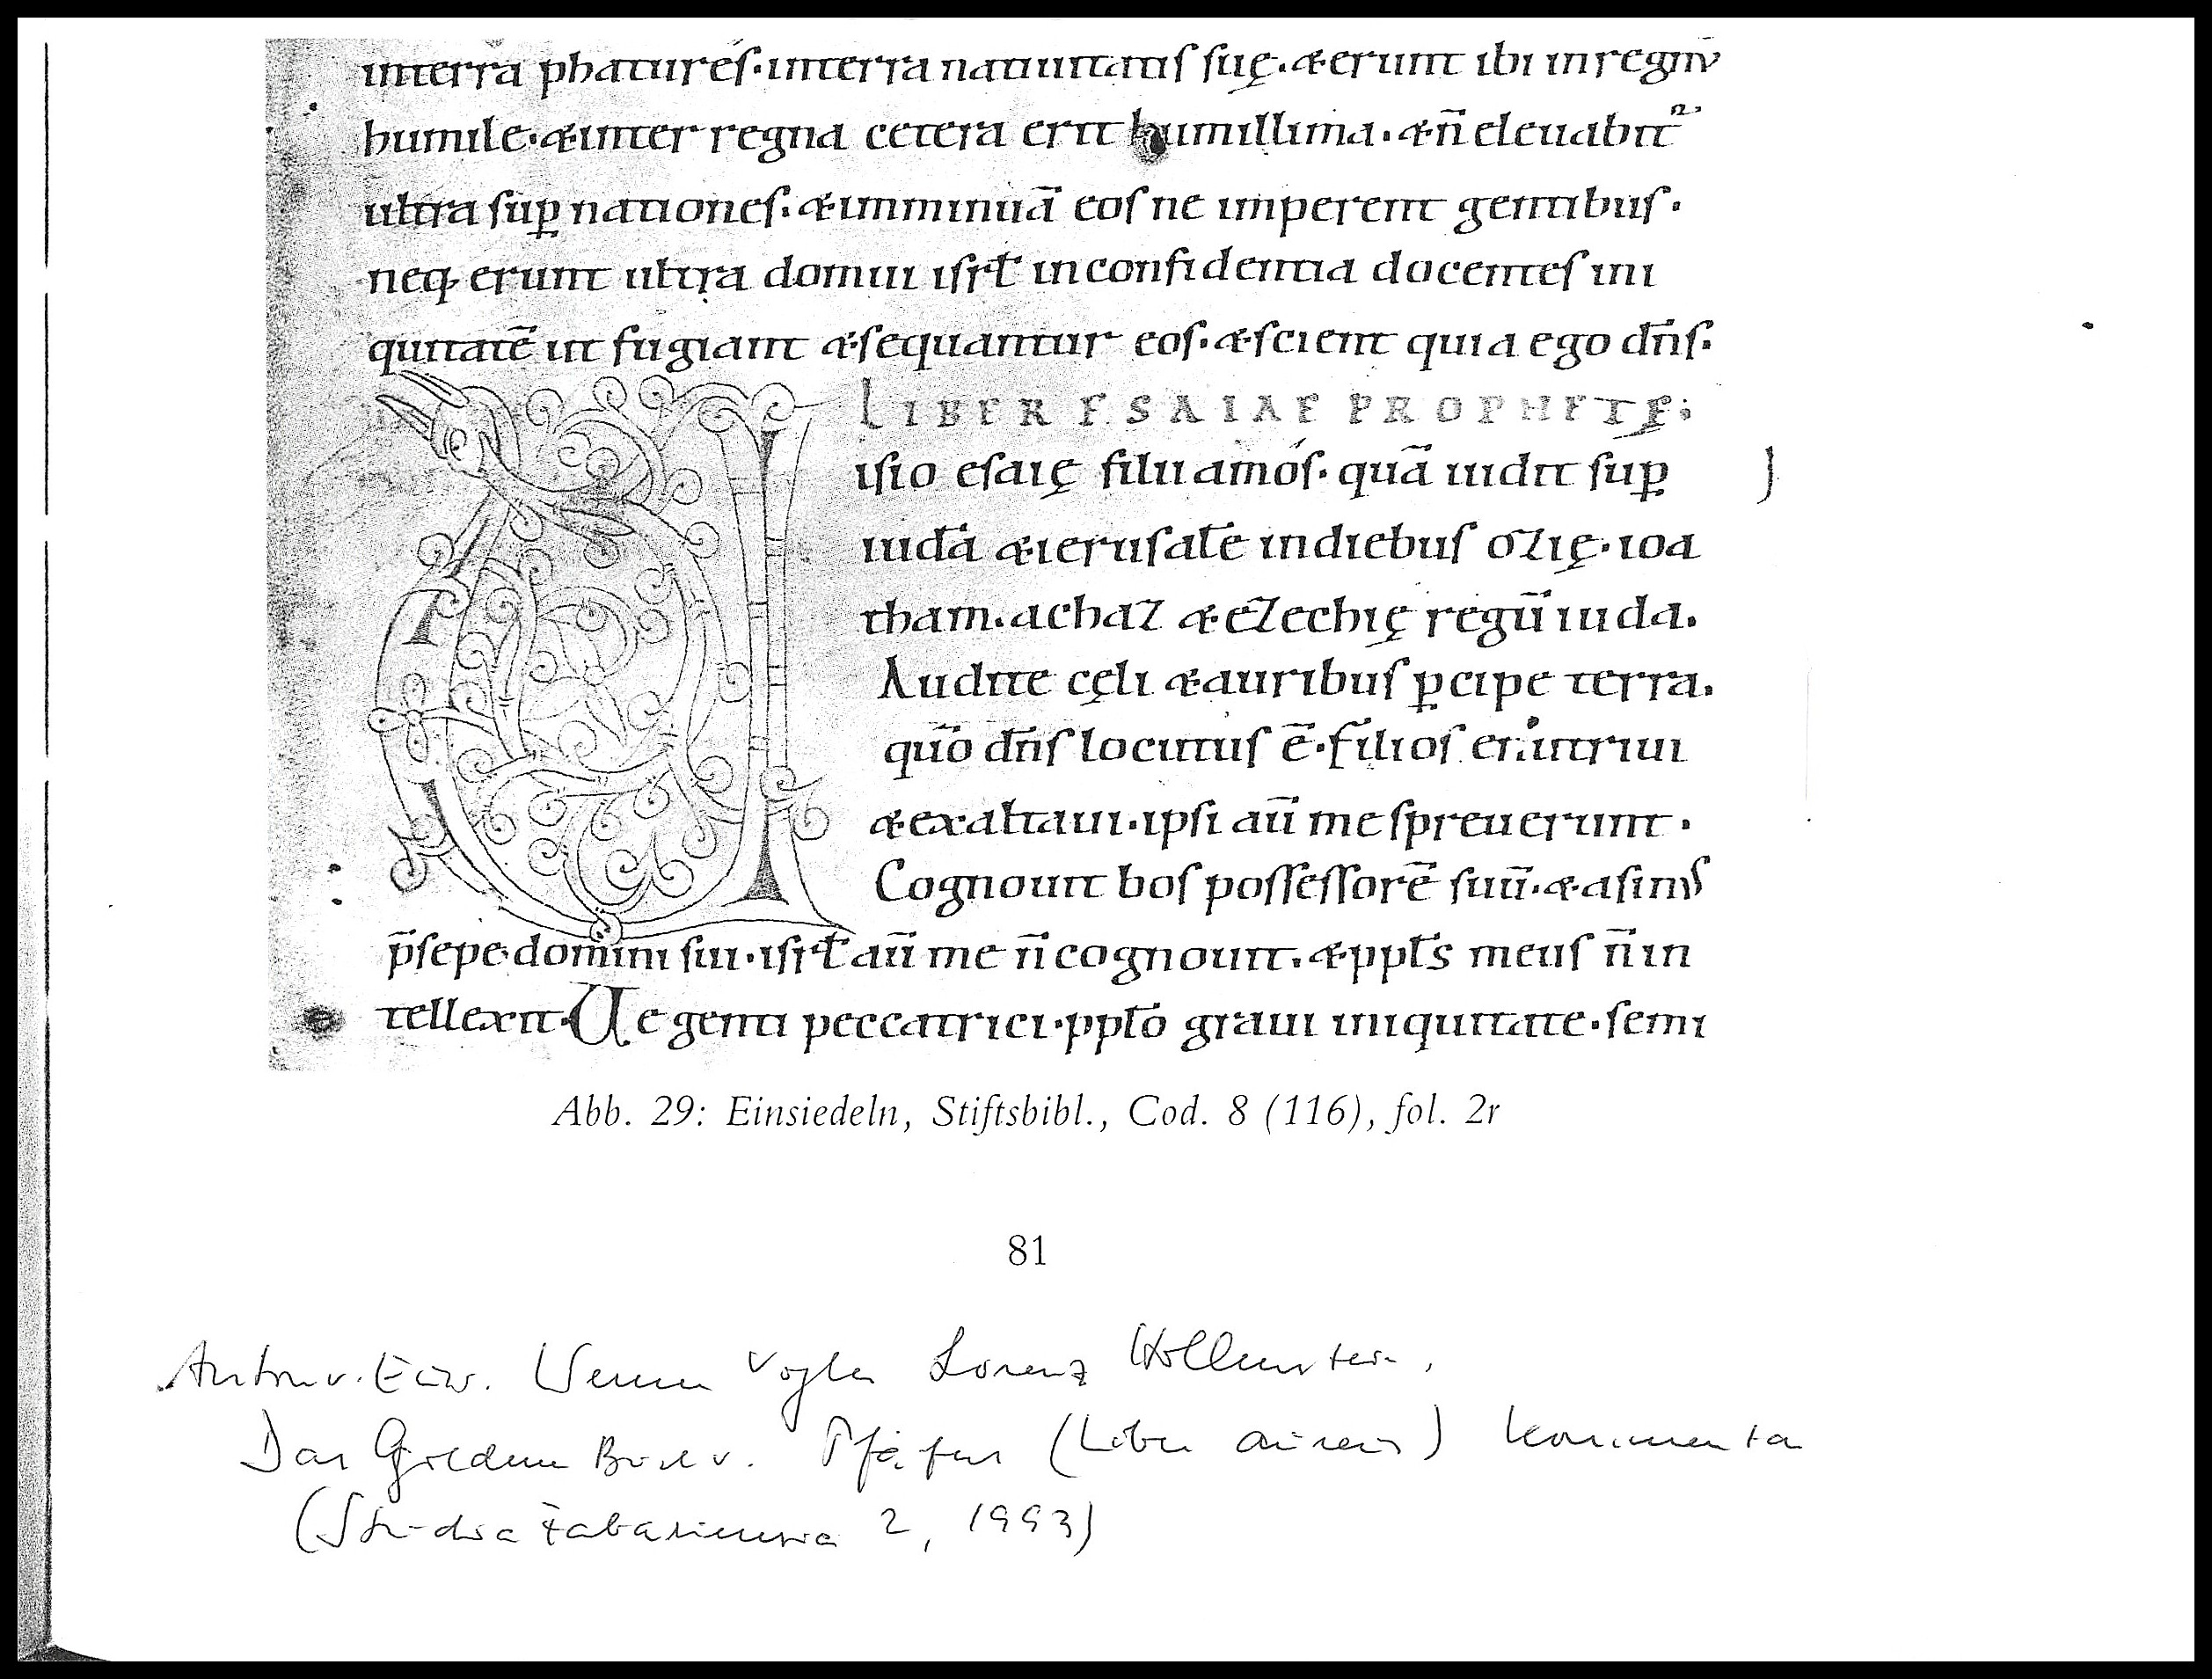 interra phatures·interra natiuitatis suę·& erunt ibi inregnū
humile·& inter regna cetera erit humillima·& n̄ eleuabit᷑
ultra sup̱ nationes·& imminuā eos ne imperent gentibus·
neq· erunt ultra domui isrł inconfidentia docentes ini
quitatē ut fugiant & sequantur eos·& scient quia ego dn̄s·
LIBER ESAIAE PROPHETĘ;
Uisio esaię filii amós·quā uidit sup̱
iudā & ierusałe indiebus ozię·ioa
tham·achaz & ezechię regū iuda.
Audite cęli & auribus p̱cipe terra.
quō dn̄s locutus ē·filios enutriui
& exaltaui·ipsi aū me spreuerunt·
Cognouit bos possessorē suū·& asinus
p̄sepe domini sui·isrł aū me n̄ cognouit·& ppłs meus n̄ in
tellexit·Ue genti peccatrici·ppło graui iniquitate·semi
Abb. 29: Einsiedeln, Stiftsbibl., Cod. 8 (116), fol. 2r
81
Anton v. Euw. Werner Vogler Lorenz Hollenstein,
Das Goldene Buch v. Pfäfers (Liber aureus) Kommentar
(Studia Fabariensia 2, 1993)